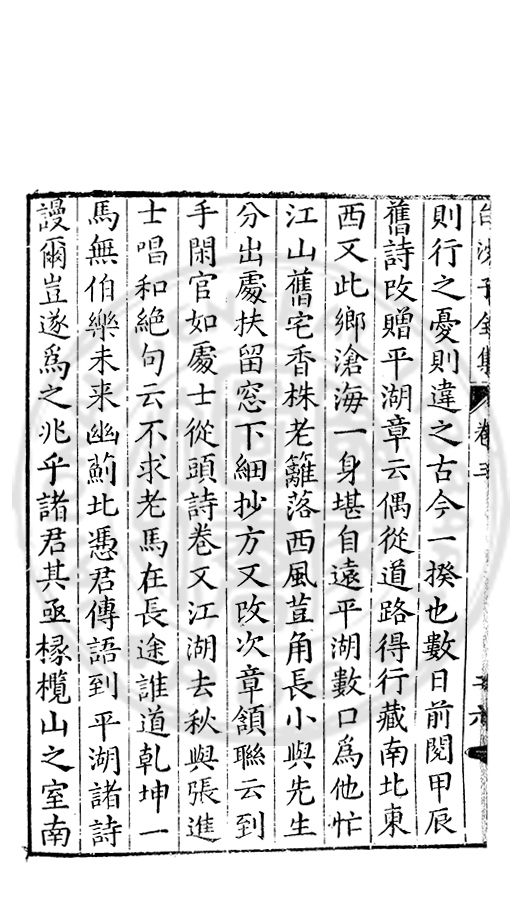 白沙子全集 卷三 二六
則行之憂則違之古今一揆也數日前閱甲辰
舊詩改贈平湖章云偶從道路得行藏南北東
西又此鄉滄海一身堪自遠平湖數口為他忙
江山舊宅香株老籬落西風荳角長小與先生
分出處扶留窓下細抄方又改次章頷聯云到
手閑官如處士從頭詩卷又江湖去秋與張進
士唱和絶句云不求老馬在長途誰道乾坤一
馬無伯樂未来幽薊北憑君傳語到平湖諸詩
謾爾豈遂為之兆乎諸君其亟椽欖山之室南